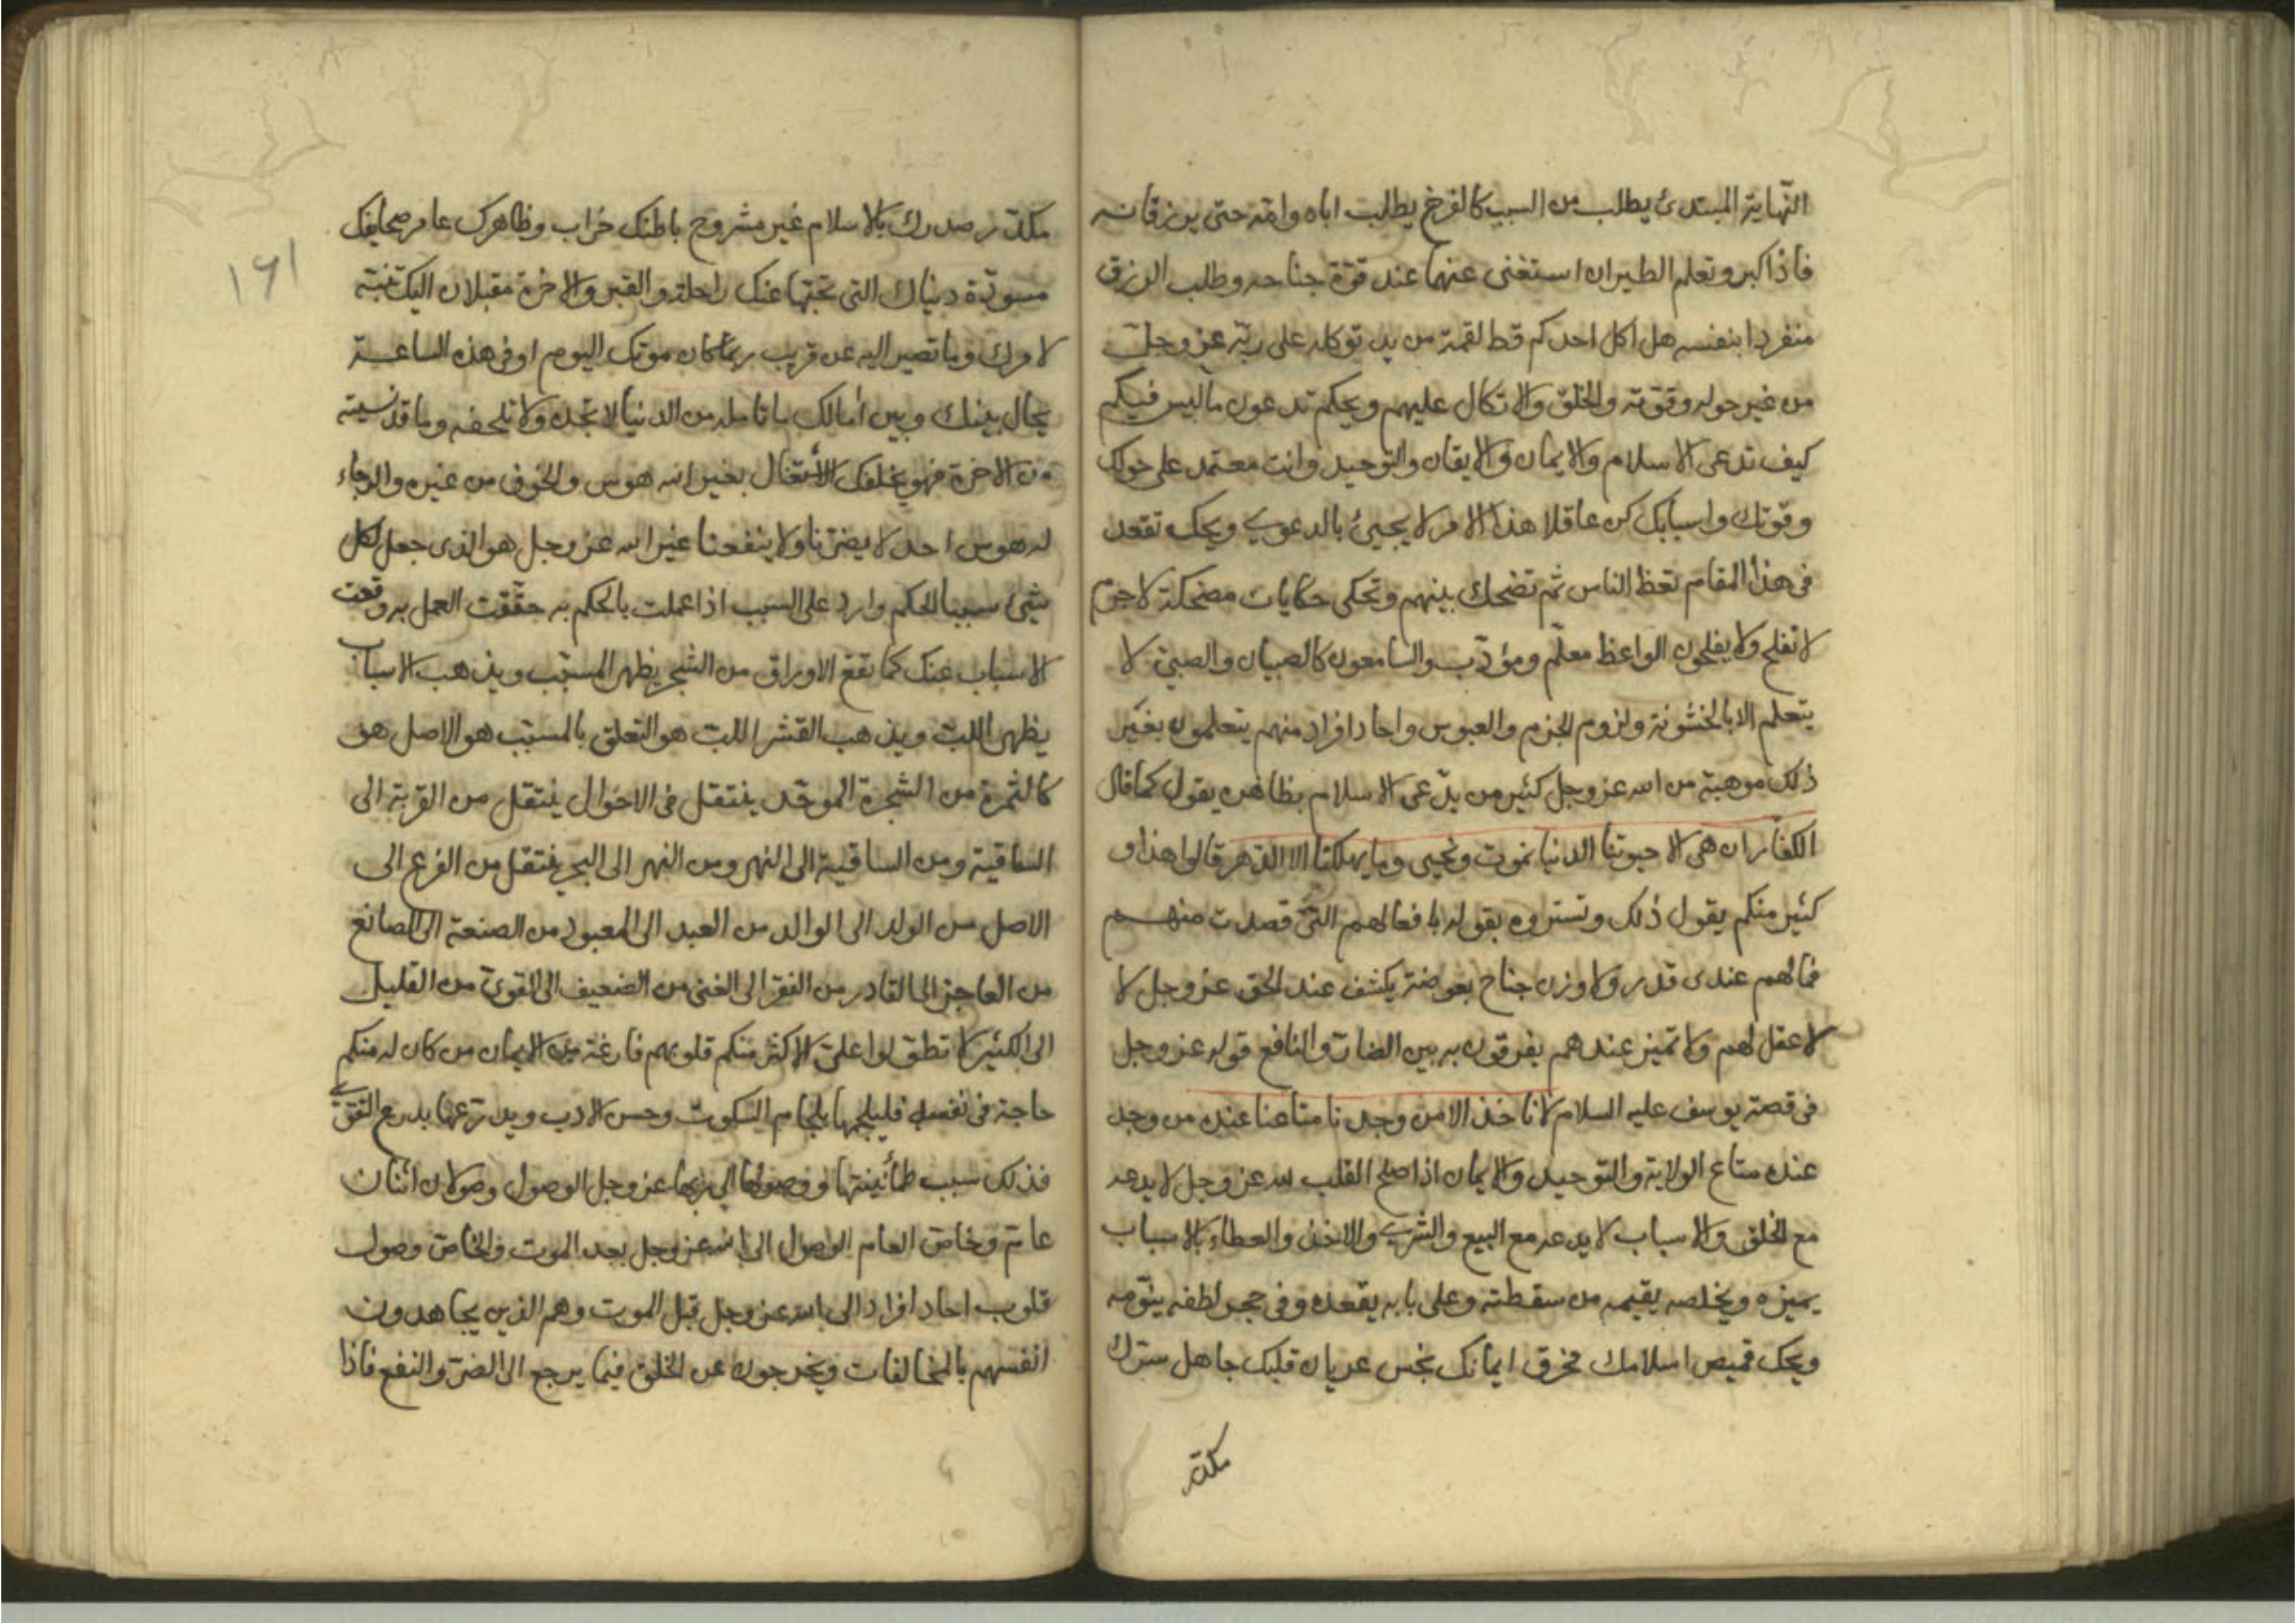 النّهاية المبتدئ يطلب من السبب كالفرخ يطلب اباه وامّه حتى يرزقانه
فاذا كبر وتعلم الطيران استغنى عنهما عند قوّة جناحه وطلب الرزق
منفردا بنفسه هل اكل احدكم قط لقمة من يد توكله على ربّه عز وجلّ
من غير حوله وقوّته والخلق والاتكال عليهم ويحكم تدعون ما ليس فيكم
كيف تدعى الاسلام والايمان والايقان والتوحيد وانت معتمد على حولك
وقوّتك واسبابك كن عاقلا هذا الامر لا يجيئ بالدعوى ويحك تقعد
فى هذا المقام تعظ الناس ثم تضحك بينهم وتحكى حكايات مضحكة لا جرم
لا تفلح ولا يفلحون الواعظ معلّم ومؤدّب والسامعون كالصبيان والصبىّ لا
يتعلم الا بالخشونة ولزوم الحزم والعبوس واحاد افراد منهم يتعلمون بغير
ذلك موهبة من الله عز وجل كثير من يدّعى الاسلام بظاهره يقول كما قال
الكفّار ان هى الا حيوتنا الدنيا نموت ونحيى وما يهلكنا الا الدّهر قالوا هذا و
كثير منكم يقول ذلك وتستروه بقوله بافعالهم التى قصدت منهم
فما لهم عندى قدر ولا وزن جناح بعوضة يكشف عند الحق عز وجل لا
لا عقل لهم ولا تميز عندهم يفرقون به بين الضارّ والنافع قوله عز وجل
فى قصة يوسف عليه السلام لا ناخذ الا من وجدنا متاعنا عنده من وجد
عنده متاع الولاية والتوحيد والايمان اذا صلح القلب لله عز وجل لا يدعه
مع الخلق والاسباب لا يدعه مع البيع والشرى والاخذ والعطاء بالاسباب
يميزه ويخلصه يقيمه من سقطته وعلى بابه يقعده وفى حجر لطفه ينوّمه
ويحك قميص اسلامك مخرق ايمانك نجس عريان قلبك جاهل سترك
مكدّر
١٦١
مكدّر صدرك بالاسلام غير مشروح باطنك خراب وظاهرك عامر صحايفك
مسوّدة دنياك التى تحبّها عنك راحلة والقبر والاخرة مقبلان اليك تنبّه
لامرك وما تصير اليه عن قريب ربما كان موتك اليوم او فى هذه الساعة
يحال بينك وبين آمالك ما تامله من الدنيا لا تجده ولا تلحقه وما قد نسيته
من الاخرة فهو يخلفك الاشتغال بغير الله هوس والخوف من غيره والرجاء
له هوس احد لا يضرّنا ولا ينفعنا غير الله عز وجل هو الذى جعل لكل
شئ سببا الحكم وارد على السبب اذا عملت بالحكم به حقّقت العمل به وقعت
الاسباب عنك كما تقع الاوراق من الشجر يظهر المسبّب ويذهب الاسباب
يظهر اللبّ ويذهب القشر اللبّ هو التعلق بالمسبّب هو الاصل هو
كالثمرة من الشجرة الموحّد ينتقل فى الاحوال ينتقل من القربة الى
الساقية ومن الساقية الى النهر ومن النهر الى البحر ينتقل من الفرع الى
الاصل من الولد الى الوالد من العبد الى المعبود من الصنعة الى الصانع
من العاجز الى القادر من الفقر الى الغنى من الضعيف الى القوىّ من القليل
الى الكثير لا تطوّلوا علىّ الاكثر منكم قلوبهم فارغة من الايمان من كان له منكم
حاجة فى نفسه فليلجمها بلجام السكوت وحسن الادب ويدرّعها بدرع التقوى
فذلك سبب طمأنينتها ووصولها الى ربها عز وجل الوصول وصولان اثنان
عامّ وخاصّ العام الوصول الى الله عز وجل بعد الموت والخاصّ وصول
قلوب احاد افراد الى الله عز وجل قبل الموت وهم الذين يجاهدون
انفسهم بالمخالفات ويخرجون عن الخلق فيما يرجع الى الضرّ والنفع فاذا